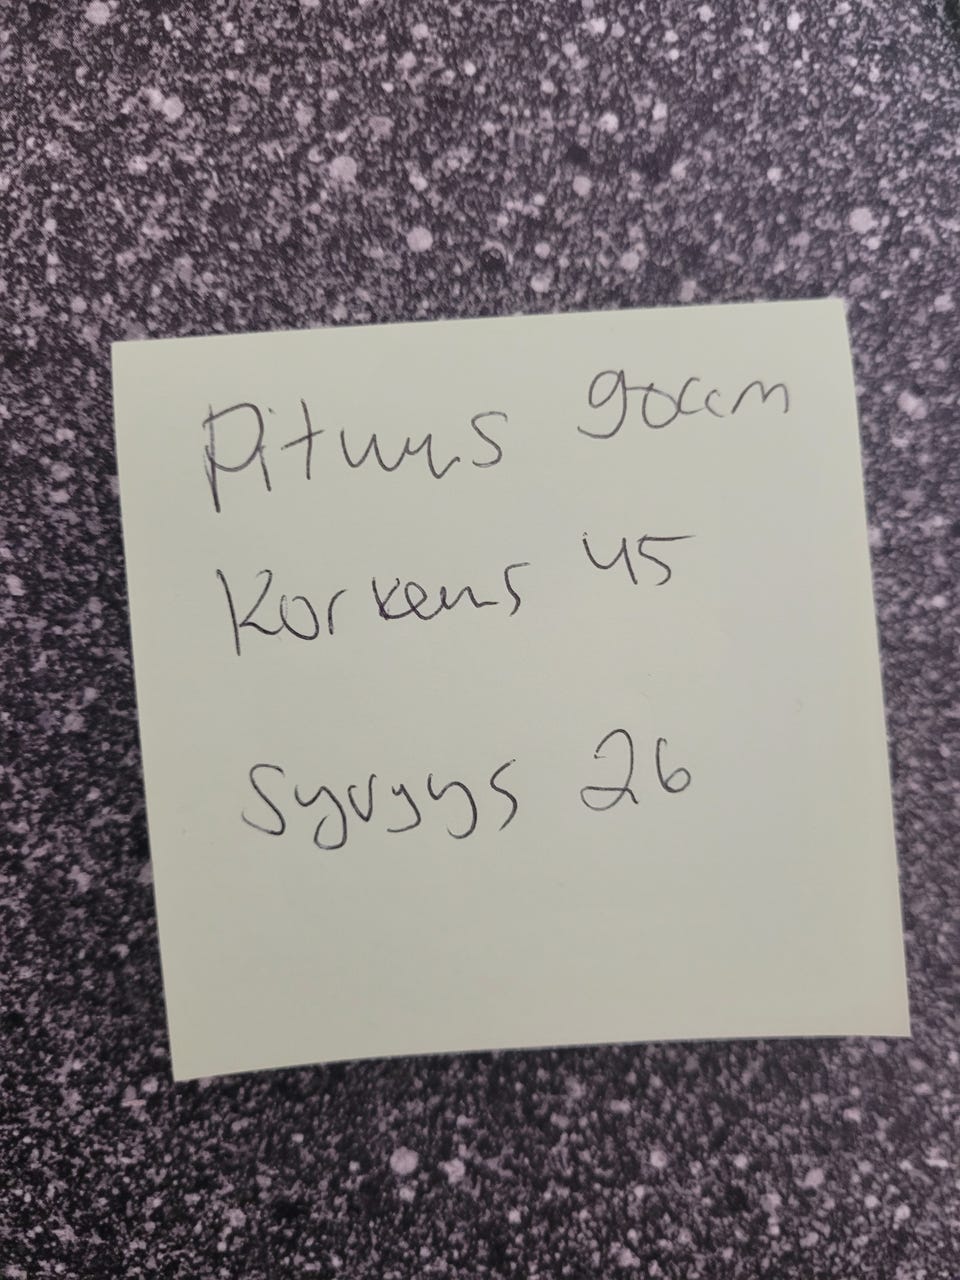 Pituus 90cm
Korkeus 45
Syvyys 26